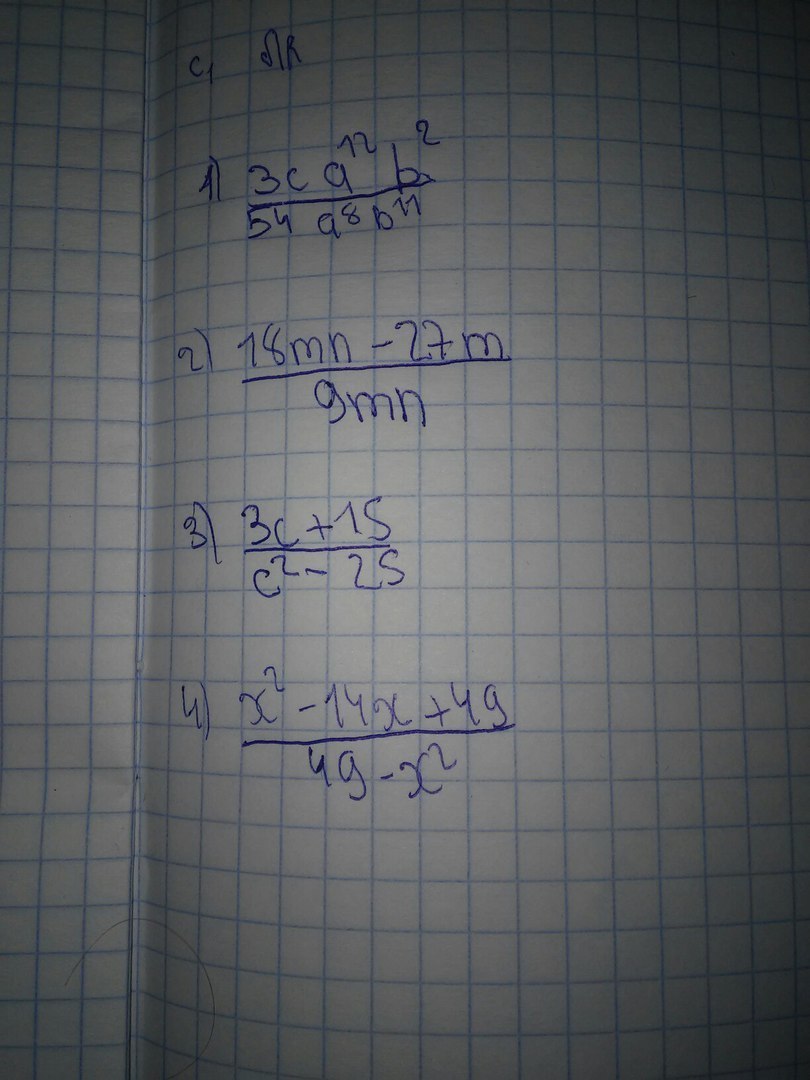 1) 3c a¹² b²
54 a⁸ b¹¹
2) 18mn - 27m
9mn
3) 3c + 15
c² - 25
4) x² - 14x + 49
49 - x²